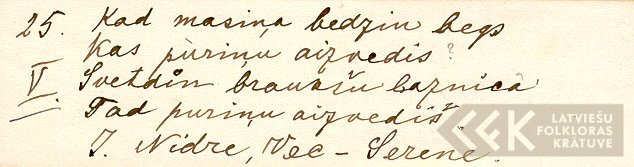 25. Kad masiņa bedzin begs
Kas pūriņu aizvedis?
V. Svetdīn braukšu baznīcā
Tad puriņu aizvedīš
J. Nidre, Vec-Serene.
LATVIEŠU
FOLKLORAS
KRĀTUVE